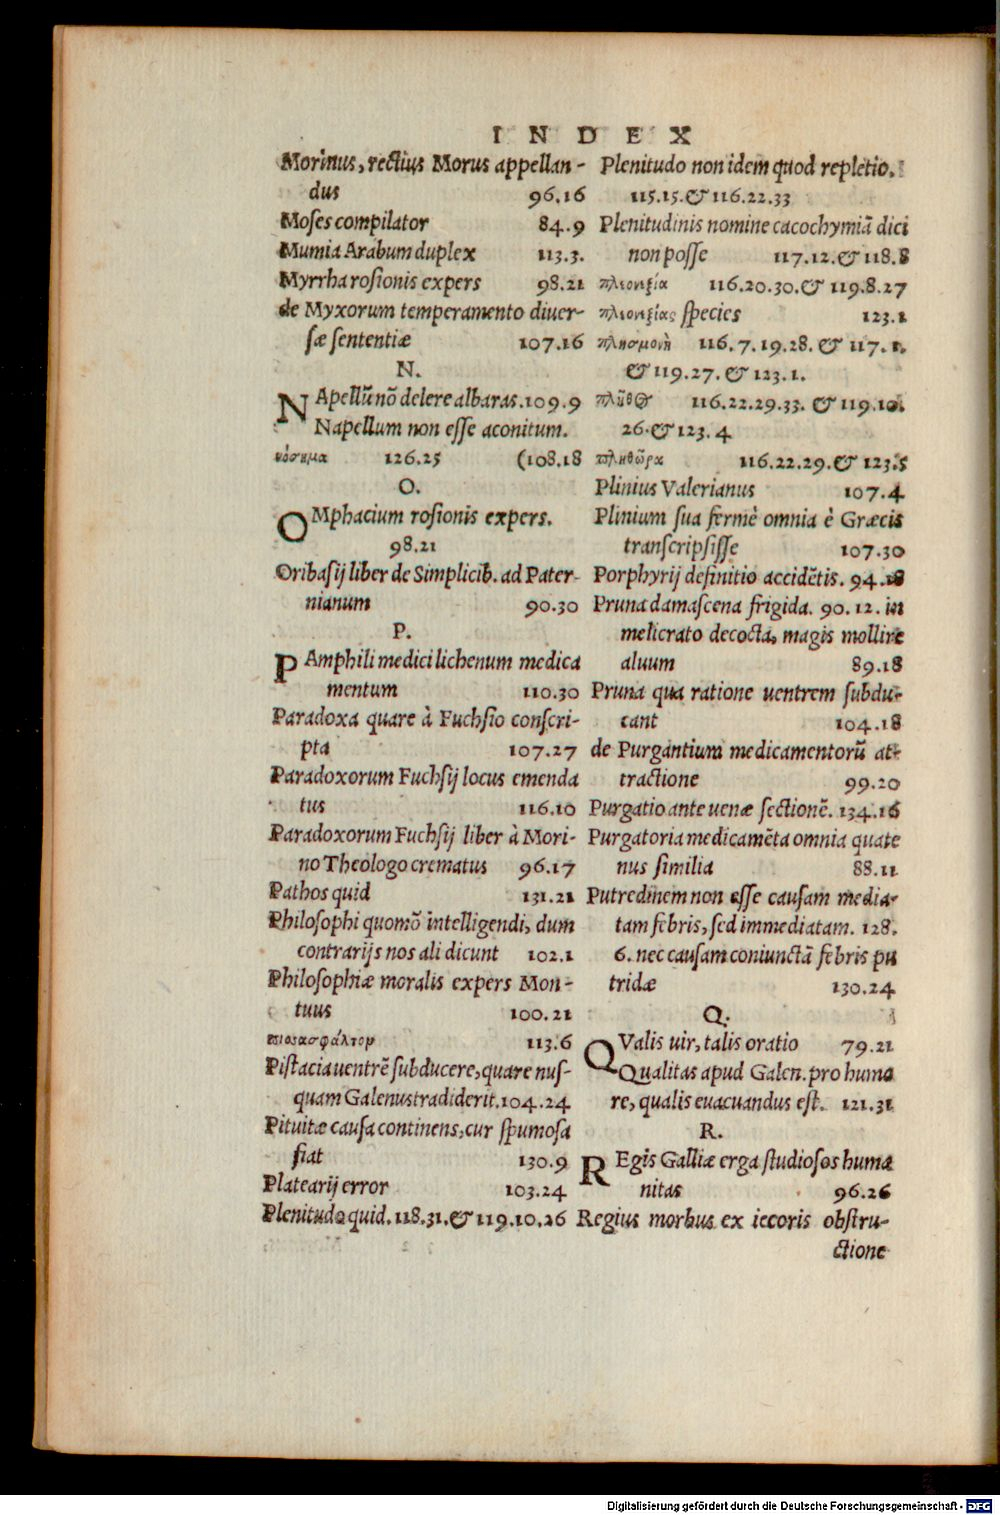 INDEX
Morinus, rectius Morus appellan-
dus 96.16
Moses compilator 84.9
Mumia Arabum duplex 113.3.
Myrrha rosionis expers 98.21
de Myxorum temperamento diuer-
sæ sententiæ 107.16
N.
NApellũ nõ delere albaras. 109.9
Napellum non esse aconitum.
νόσημα 126.25 (108.18
O.
OMphacium rosionis expers.
98.21
Oribasij liber de Simplicib. ad Pater-
nianum 90.30
P.
PAmphili medici lichenum medica
mentum 110.30
Paradoxa quare à Fuchsio conscri-
pta 107.27
Paradoxorum Fuchsij locus emenda
tus 116.10
Paradoxorum Fuchsij liber à Mori-
no Theologo crematus 96.17
Pathos quid 131.21
Philosophi quomõ intelligendi, dum
contrarijs nos ali dicunt 102.1
Philosophiæ moralis expers Mon-
tuus 100.21
πισσασφάλτορ 113.6
Pistacia uentrẽ subducere, quare nus-
quam Galenus tradiderit. 104.24
Pituitæ causa continens, cur spumosa
fiat 130.9
Platearij error 103.24
Plenitudo quid. 118.31. & 119.10.26
Plenitudo non idem quod repletio.
115.15. & 116.22.33
Plenitudinis nomine cacochymiã dici
non posse 117.12. & 118.8
πλεονεξία 116.20.30. & 119.8.27
πλεονεξίας species 123.1
πλησμονὴ 116.7.19.28. & 117.1.
& 119.27. & 123.1.
πλῆθος 116.22.29.33. & 119.10.
26. & 123.4
πληθώρα 116.22.29. & 123.5
Plinius Valerianus 107.4
Plinium sua fermè omnia è Græcis
transcripsisse 107.30
Porphyrij definitio accidẽtis. 94.18
Pruna damascena frigida. 90.12. in
melicrato decocta, magis mollire
aluum 89.18
Pruna qua ratione uentrem subdu-
cant 104.18
de Purgantium medicamentorũ at-
tractione 99.20
Purgatio ante uenæ sectionẽ. 134.16
Purgatoria medicamẽta omnia quate
nus similia 88.11
Putredinem non esse causam media-
tam febris, sed immediatam. 128.
6. nec causam coniunctã febris pu
tridæ 130.24
Q.
QValis uir, talis oratio 79.21
Qualitas apud Galen. pro humo
re, qualis euacuandus est. 121.31
R.
REgis Galliæ erga studiosos huma
nitas 96.26
Regius morbus ex iecoris obstru-
ctione
Digitalisierung gefördert durch die Deutsche Forschungsgemeinschaft - DFG